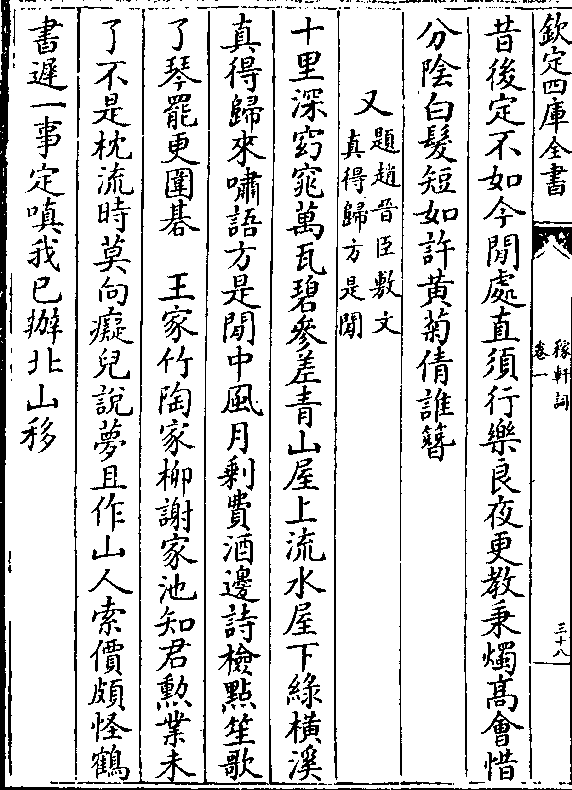 欽定四庫全書
稼軒詞
卷一
三十八
昔後定不如今閒處直須行樂良夜更教秉燭髙會惜
分陰白髪短如許黄菊倩誰簪
又題趙晉臣敷文
真得歸方是閒
十里深窈窕萬瓦碧參差青山屋上流水屋下綠横溪
真得歸來嘯語方是閒中風月剩費酒邊詩檢點笙歌
了琴罷更圍碁　王家竹陶家柳謝家池知君勲業未
了不是枕流時莫向癡兒說夢且作山人索價頗怪鶴
書遲一事定嗔我已辦北山移